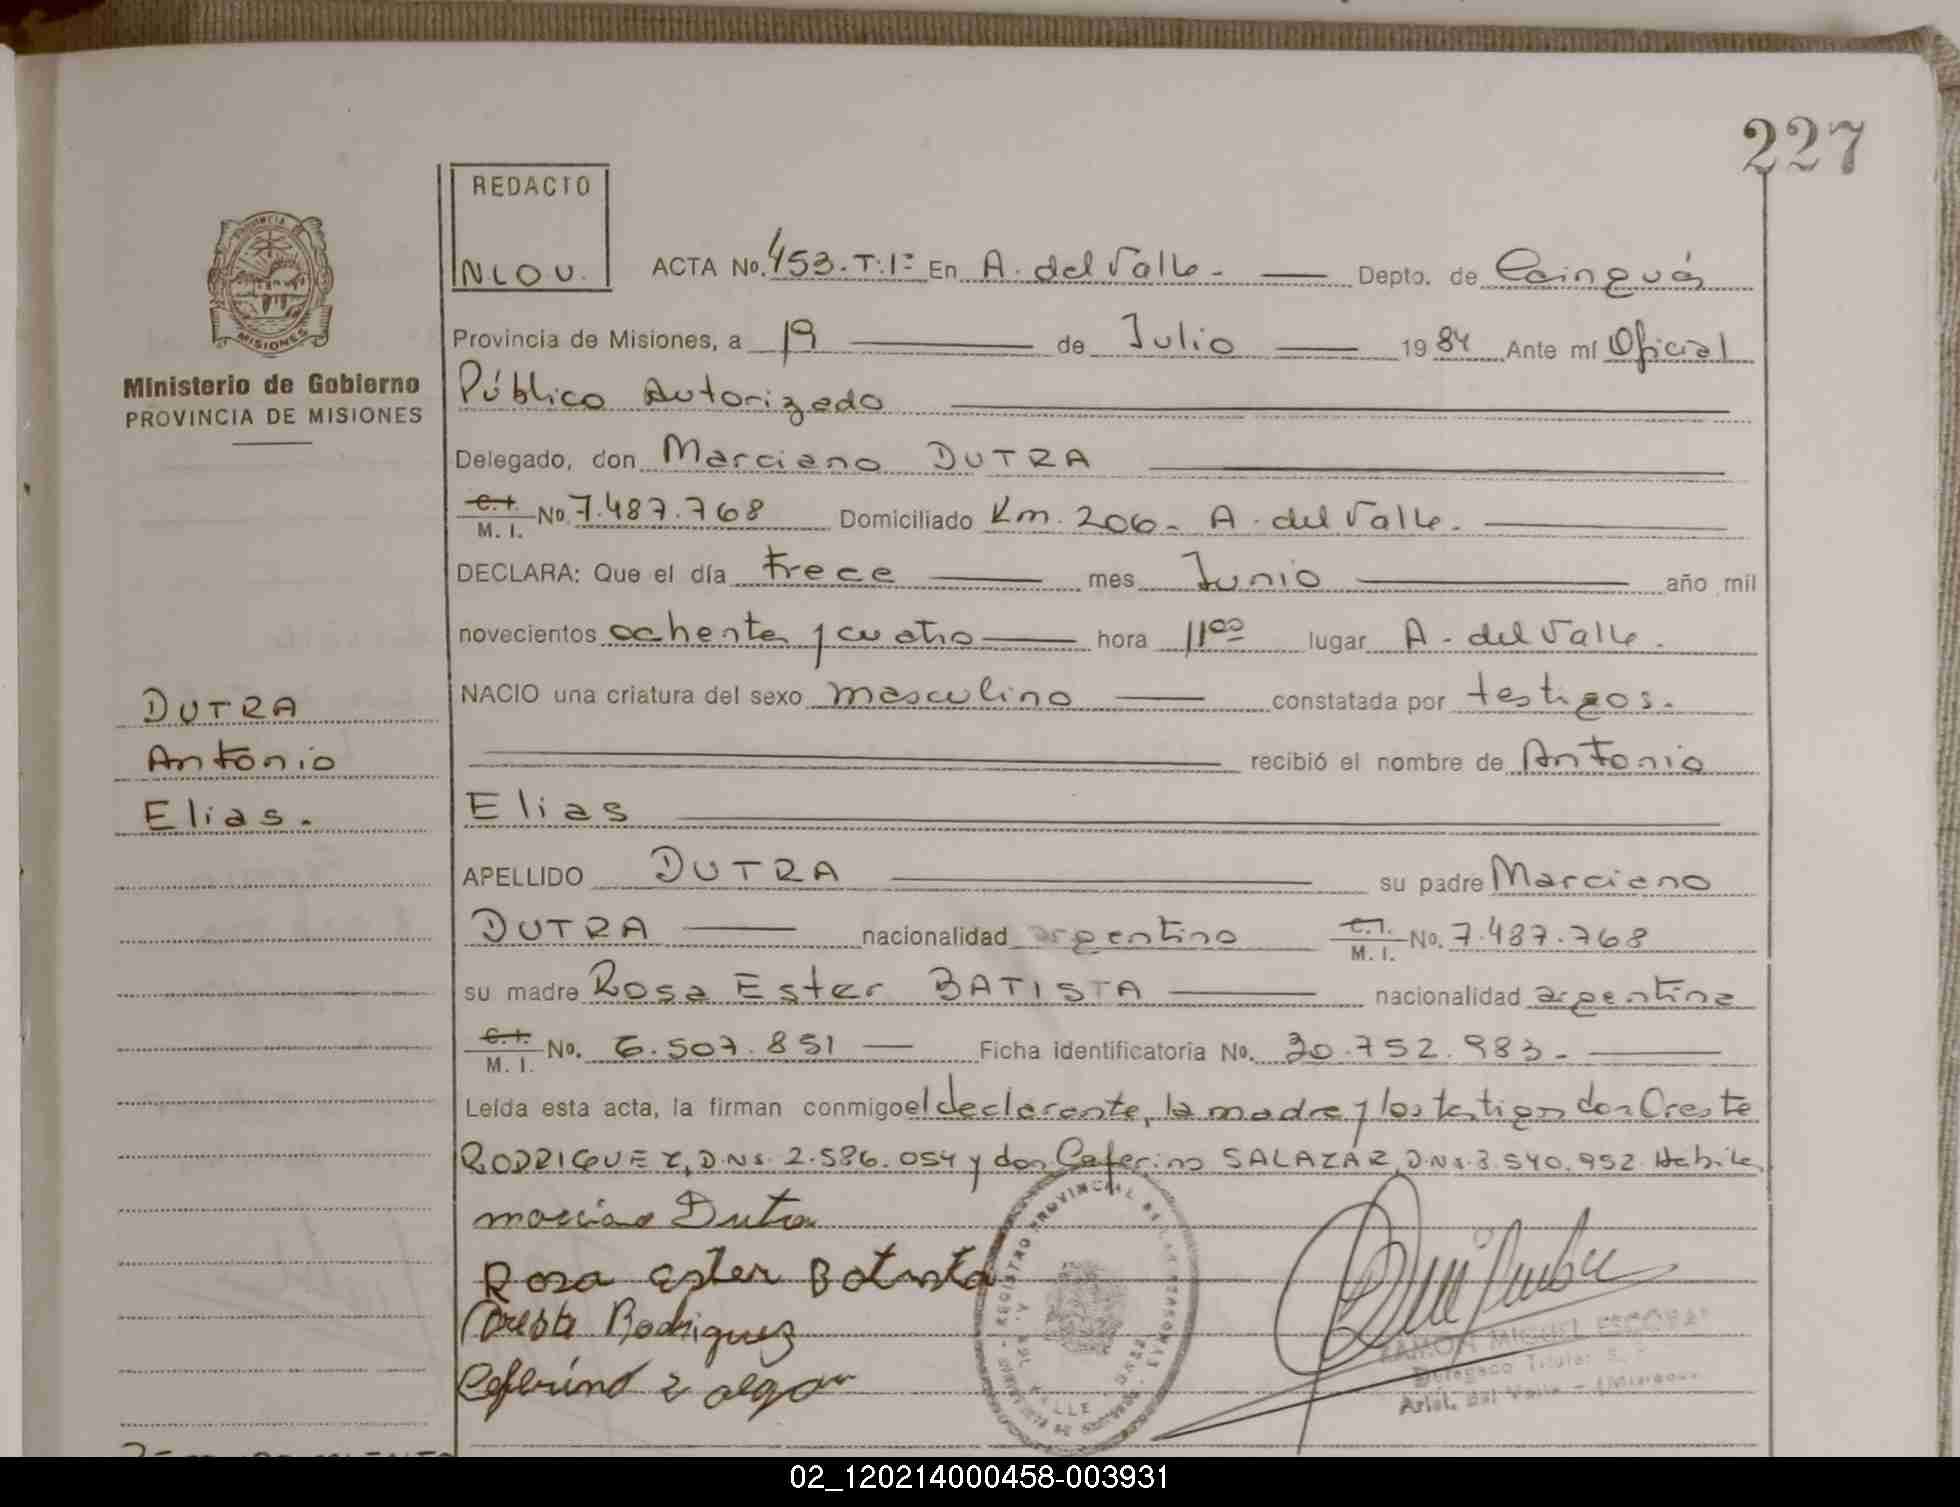 227
REDACTO
NLOU.
PROVINCIA
MISIONES
Ministerio de Gobierno
PROVINCIA DE MISIONES
ACTA No. 453.T.1º En A. del Valle - Depto. de Cainguás
Provincia de Misiones, a 19 de Julio 1984 Ante mí Oficial
Público Autorizado
Delegado, don Marciano DUTRA
C.I. M. I. No. 7.487.768 Domiciliado Km. 206- A. del Valle.
DECLARA: Que el día trece mes Junio año mil
novecientos ochenta y cuatro hora 11ºº lugar A. del Valle.
NACIO una criatura del sexo masculino constatada por testigos.
recibió el nombre de Antonio
Elias
DUTRA
Antonio
Elias.
APELLIDO DUTRA su padre Marciano
DUTRA nacionalidad argentino C.I. M. I. No. 7.487.768
su madre Rosa Ester BATISTA nacionalidad argentina
C.I. M. I. No. 6.507.851 Ficha identificatoria No. 30.752.983.
Leída esta acta, la firman conmigo el declarante, la madre y los testigos don Oreste
RODRIGUEZ, D.Nº. 2.586.054 y don Ceferino SALAZAR, D.Nº. 3.540.952. Habiles
marciano Dutra
Rosa Ester Batista
Oreste Rodriguez
REGISTRO PROVINCIAL DE LAS PERSONAS
DEL VALLE
RAMON MIGUEL ESCOBAR
Delegado Titular
Arist. del Valle - (Misiones)
02_120214000458-003931